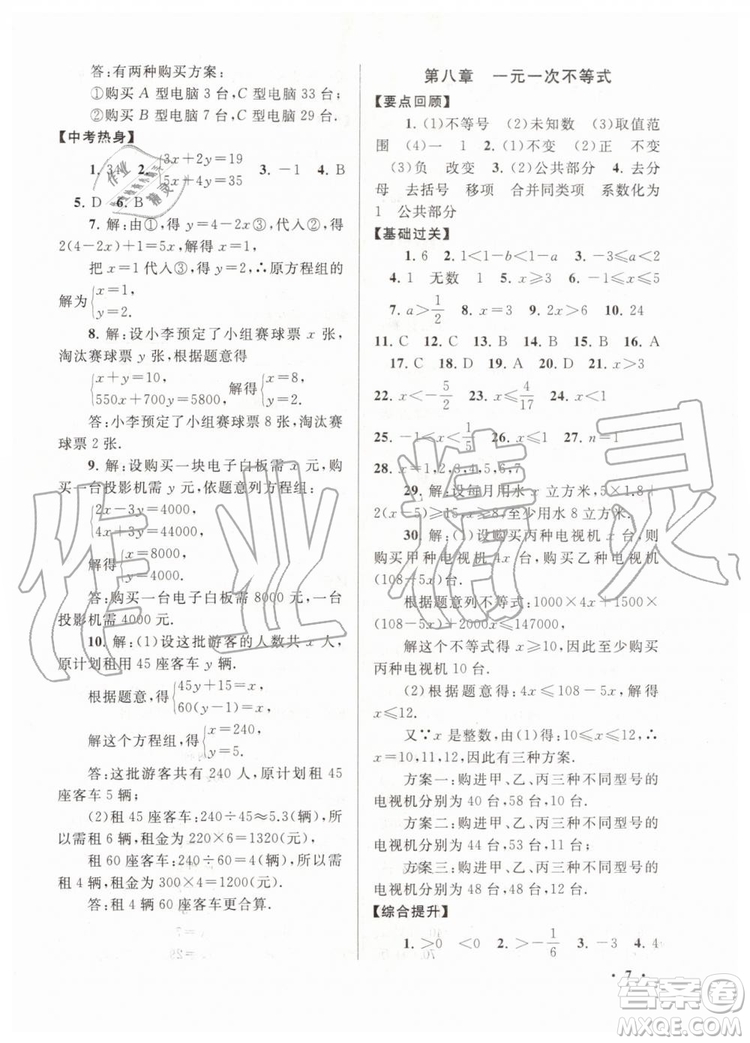 答:有两种购买方案:
①购买 A 型电脑 3 台,C 型电脑 33 台;
②购买 B 型电脑 7 台,C 型电脑 29 台.
【中考热身】
1. 3 2. {3x+2y=19 x+4y=35 3. -1 4. B
5. D 6. B
7. 解:由①,得 y=4-2x③,代入②,得
2(4-2x)+1=5x,得 x=1.
把 x=1 代入③,得 y=2,∴原方程组的
解为{x=1, y=2.
8. 解:设小李预定了小组赛球票 x 张,
淘汰赛球票 y 张,根据题意得
{x+y=10, 550x+700y=5800, 解得{x=8, y=2.
答:小李预定了小组赛球票 8 张,淘汰赛
球票 2 张.
9. 解:设购买一块电子白板需 x 元,购
买一台投影机需 y 元,依题意列方程组:
{2x-3y=4000, 4x+3y=44000,
解得{x=8000, y=4000.
答:购买一台电子白板需 8000 元,一台
投影机需 4000 元.
10. 解:(1)设这批游客的人数共 x 人,
原计划租用 45 座客车 y 辆.
根据题意,得{45y+15=x, 60(y-1)=x,
解这个方程组,得{x=240, y=5.
答:这批游客共 240 人,原计划租 45
座客车 5 辆;
(2)租 45 座客车:240÷45≈5.3(辆),
所以需租 6 辆,租金为 220×6=1320(元),
租 60 座客车:240÷60=4(辆),所以需
租 4 辆,租金为 300×4=1200(元).
答:租用 4 辆 60 座客车更合算.
第八章 一元一次不等式
【要点回顾】
1. (1)不等号 (2)未知数 (3)取值范
围 (4)一 1 不等式 2. (1)不变 (2)正 不变
(3)负 改变 3. (2)公共部分 4. 去分
母 去括号 移项 合并同类项 系数化为
1 公共部分
【基础过关】
1. 6 2. 1<1-b<1-a 3. -1≤a≤2
4. 1 无数 1 5. x≥3 6. x≤2
7. a>1/2 8. x=3 9. x≤2 10. 24
11. C 12. C 13. B 14. C 15. B 16. A
17. C 18. D 19. C 20. D 21. A
22. x<-5/2 23. x≤4/17 24. x>1
25. -1≤x<1/5 26. x≤1 27. n=1
28. x=1,2,3,4,5,7
29. 解:设每月用水 x 立方米,5×1.8+
2(x-5)≥15,x≥8,至少用水 8 立方米.
30. 解:(1)设购买丙种电视机 x 台,则
购买甲种电视机 4x 台,购买乙种电视机
(108-5x)台.
根据题意列不等式:1000×4x+1500×
(108-5x)+2000x≤147000,
解这个不等式得 x≥10,因此至少购买
丙种电视机 10 台.
(2)根据题意得:4x≤108-5x,解得
x≤12.
又∵x 是整数,由(1)得:10≤x≤12,
∴x=10,11,12,因此有三种方案.
方案一:购进甲、乙、丙三种不同型号的
电视机分别为 40 台,58 台,10 台;
方案二:购进甲、乙、丙三种不同型号的
电视机分别为 44 台,53 台,11 台;
方案三:购进甲、乙、丙三种不同型号的
电视机分别为 48 台,48 台,12 台.
【综合提升】
1. >0 <0 2. >-1/6 3. ≤6 4. 4
· 7 ·
作业精灵
答案圈